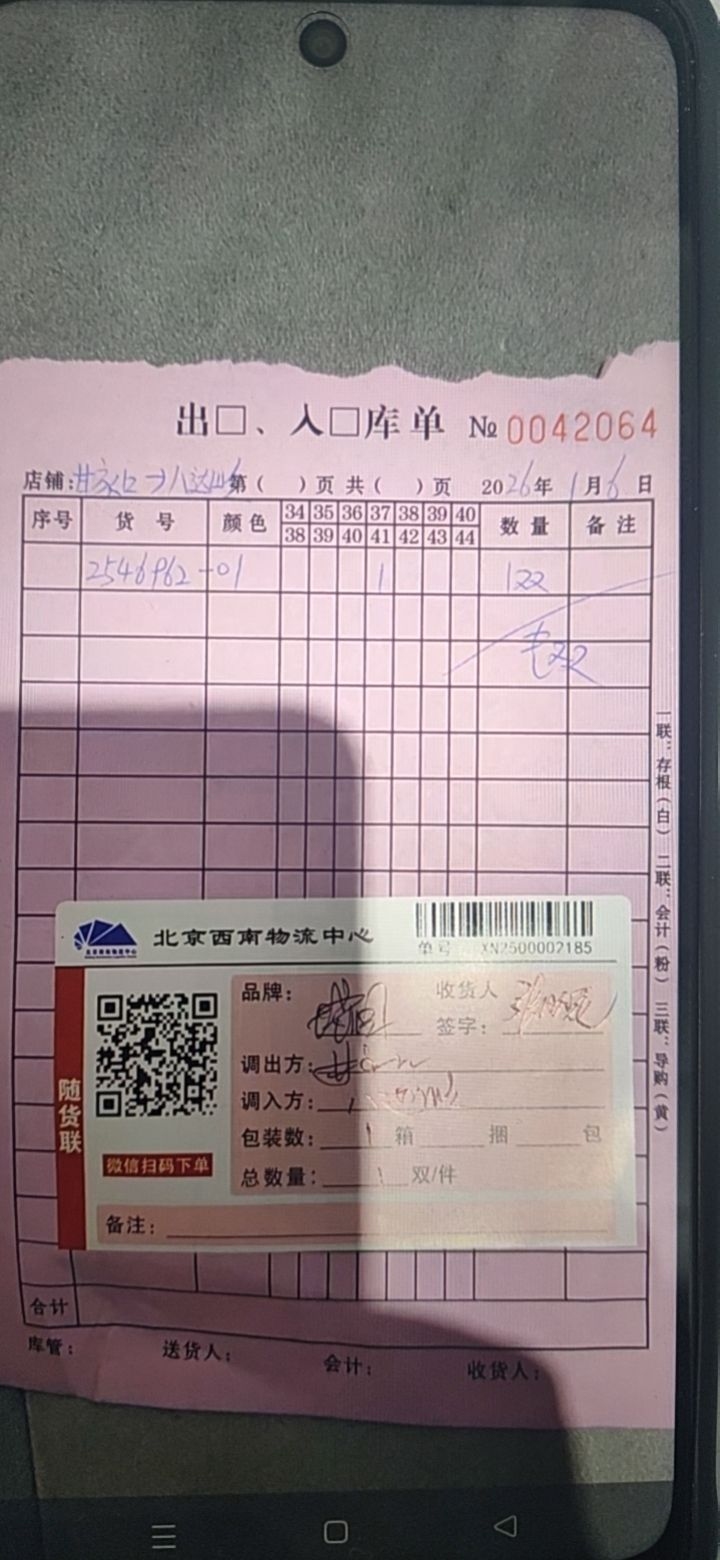 出□、入□库单 № 0042064
店铺:甘家口→八达岭 第( )页 共( )页 2026年1月6日
序号 货号 颜色 34 35 36 37 38 39 40 数量 备注
38 39 40 41 42 43 44
2546962-01 1
一联:存根(白) 二联:会计(粉) 三联:导购(黄)
北京西南物流中心
单号 XN2500002185
随货联
微信扫码下单
品牌: 收货人
签字:
调出方:
调入方:
包装数: 1 箱 捆 包
总数量: 1 双/件
备注:
合计
库管: 送货人: 会计: 收货人: